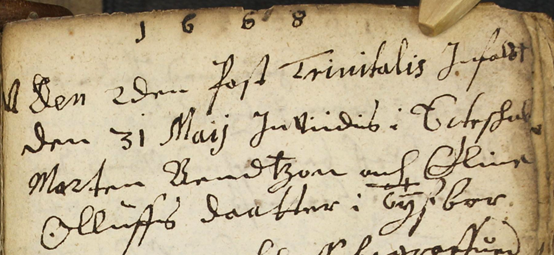 1668
Den 2den Post Trinitatis Infalt
den 31 Maij Inviedis i Ecteskab
Morten Bendtzon och Eline
Olluffs daatter i Tÿsbor